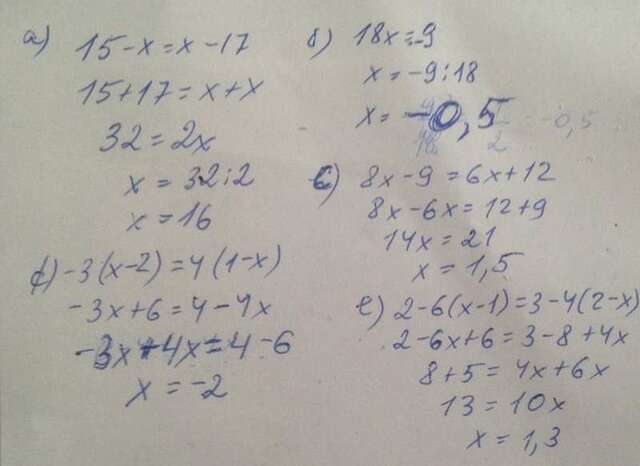 а) 15-x=x-17
15+17=x+x
32=2x
x=32:2
x=16
б) 18x=-9
x=-9:18
x=-0,5
в) 8x-9=6x+12
8x-6x=12+9
14x=21
x=1,5
-3(x-2)=4(1-x)
-3x+6=4-4x
-3x+4x=4-6
x=-2
е) 2-6(x-1)=3-4(2-x)
2-6x+6=3-8+4x
8+5=4x+6x
13=10x
x=1,3